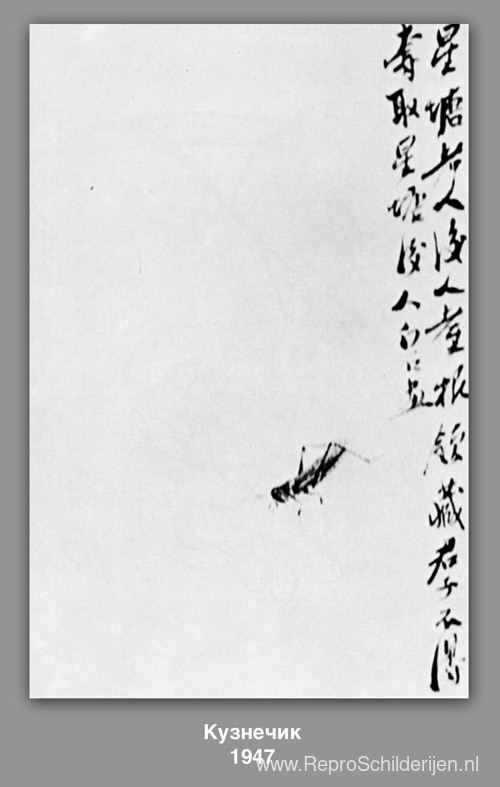 星塘老人後人根領藏君子不得
取星塘後人白石
Кузнечик
1947
www.ReproSchilderijen.nl